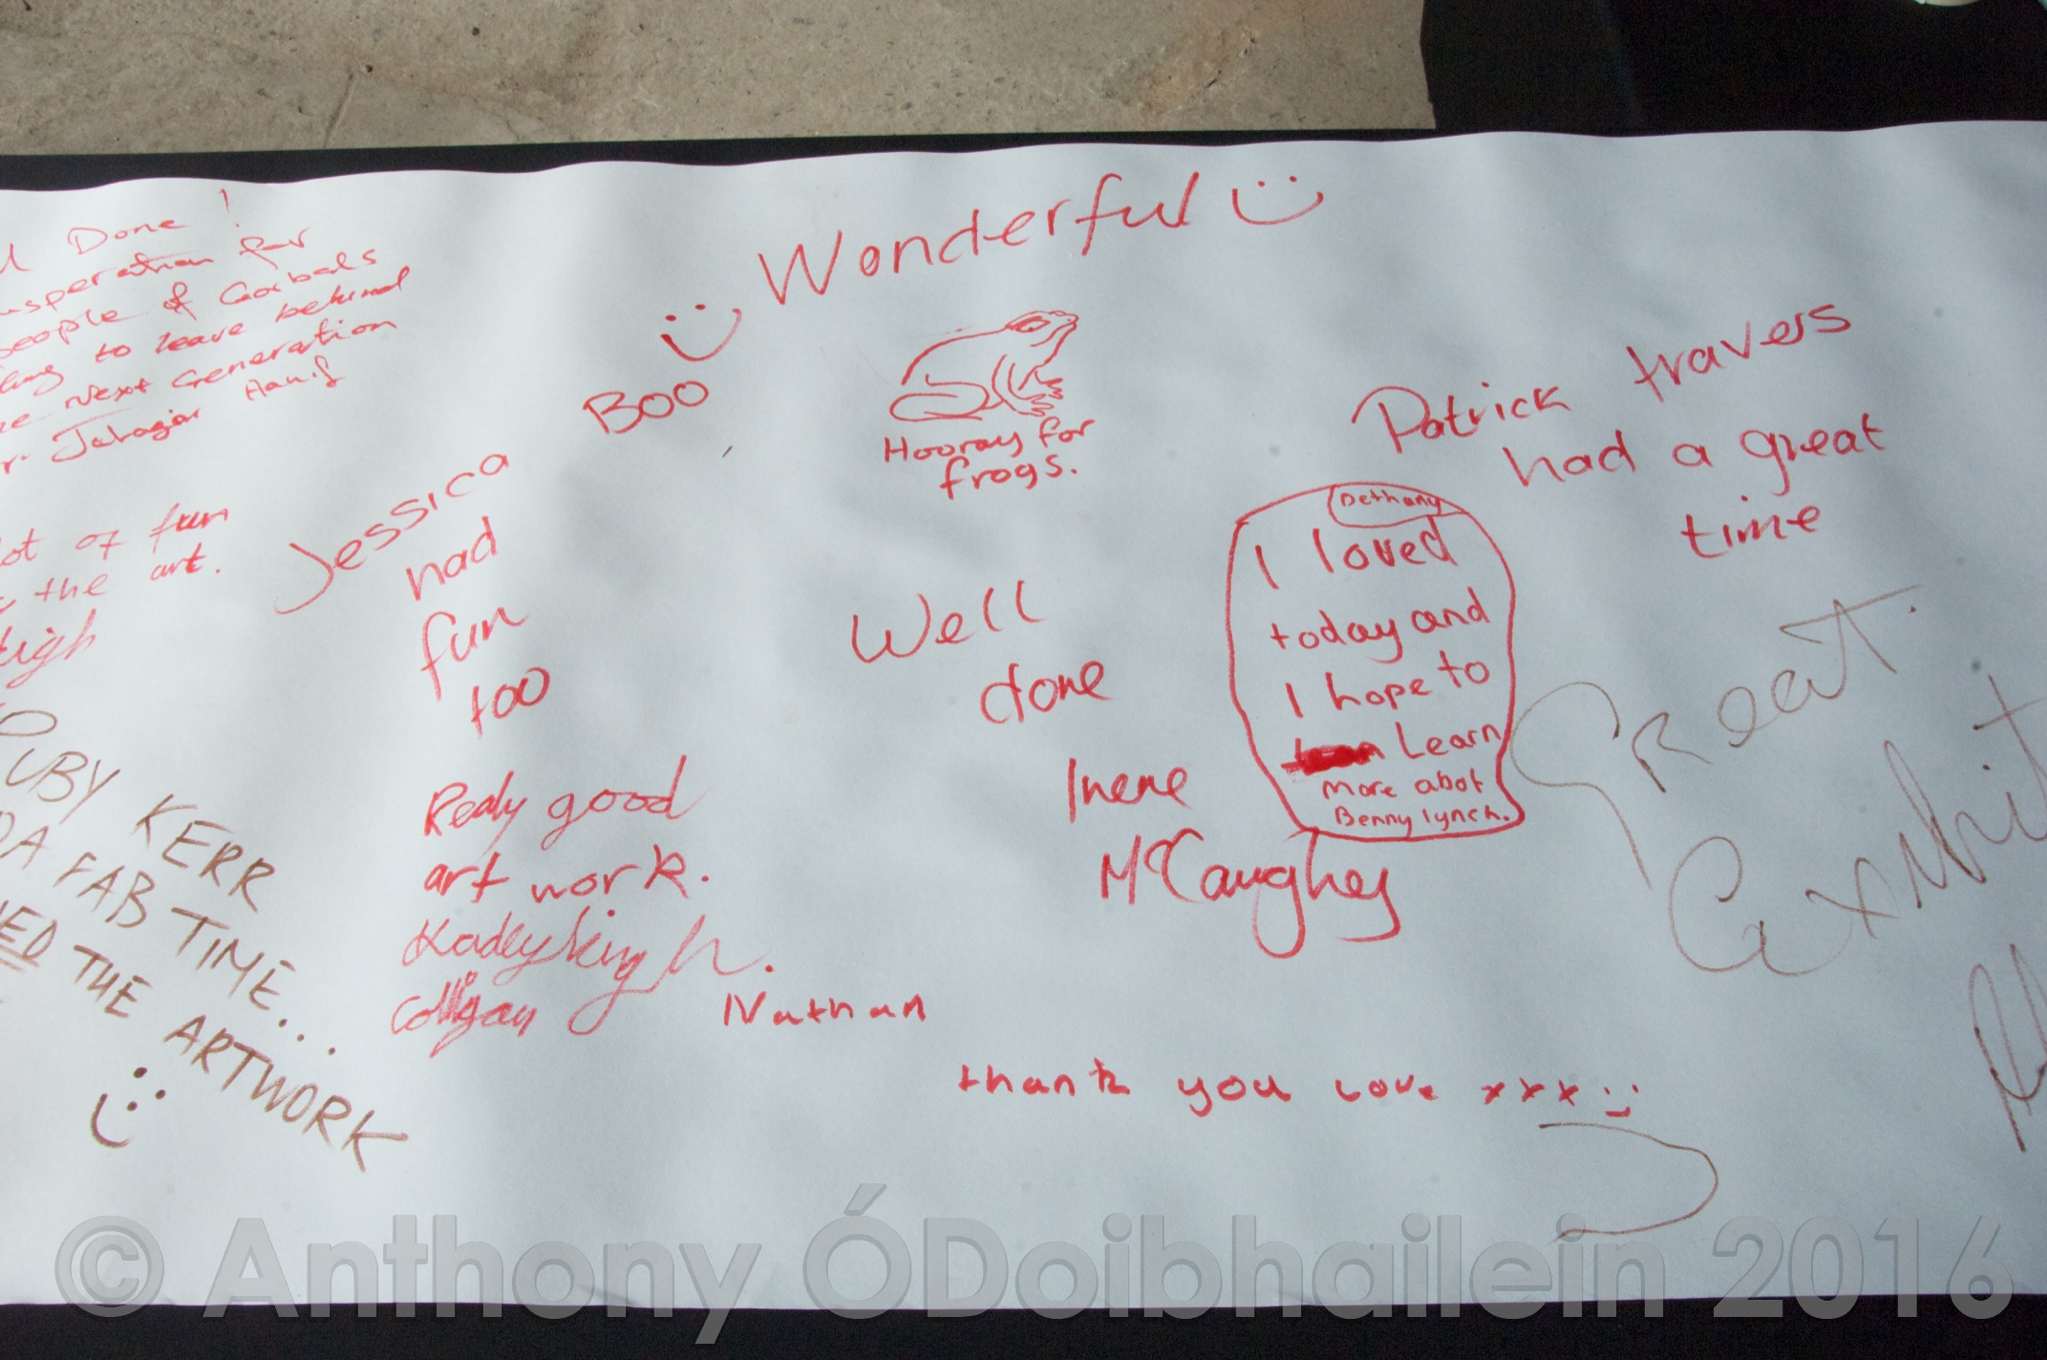 Done!
for
people of Gorbals
to leave behind
Next Generation
Hanif
lot of fun
the art.
RUBY KERR
FAB TIME...
THE ARTWORK
Jessica
had
fun
too
BOO
Wonderful
Hooray for
frogs.
Really good
art work.
Colligan
Nathan
Well
done
Irene
McCaughey
Bethany
I loved
today and
I hope to
Learn
more abot
Benny lynch.
Patrick travers
had a great
time
Great
thank you love xxx
© Anthony ÓDoibhailein 2016